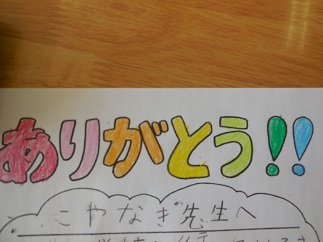 ありがとう!!
こやなぎ先生へ